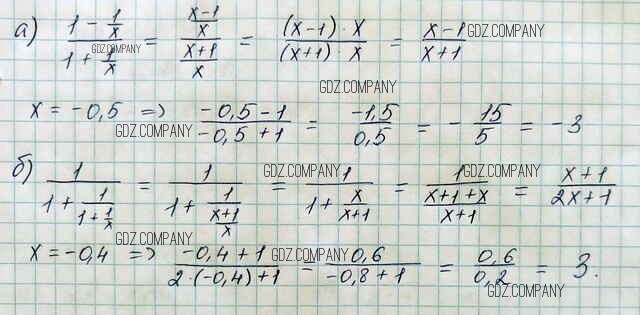 а) (1 - 1/x)/(1 + 1/x) = ((x-1)/x)/((x+1)/x) = ((x-1)·x)/((x+1)·x) = (x-1)/(x+1)
GDZ.COMPANY
GDZ.COMPANY
GDZ.COMPANY
x = -0,5 => (-0,5-1)/(-0,5+1) = (-1,5)/(0,5) = - 15/5 = -3
GDZ.COMPANY
б) 1/(1 + 1/(1 + 1/x)) = 1/(1 + 1/((x+1)/x)) = 1/(1 + x/(x+1)) = 1/((x+1+x)/(x+1)) = (x+1)/(2x+1)
GDZ.COMPANY
GDZ.COMPANY
GDZ.COMPANY
x = -0,4 => (-0,4+1)/(2·(-0,4)+1) = 0,6/(-0,8+1) = 0,6/0,2 = 3.
GDZ.COMPANY
GDZ.COMPANY